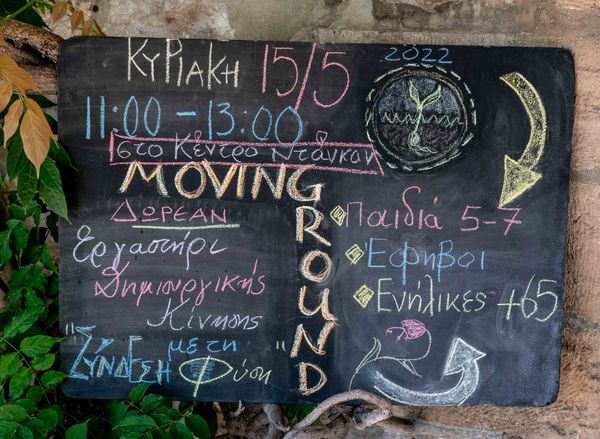 ΚΥΡΙΑΚΗ 15/5 2022
11:00 - 13:00
στο Κέντρο Ντάνκαν
MOVING
GROUND
ΔΩΡΕΑΝ
Εργαστήρι
Δημιουργικής
Κίνησης
"ΣΥΝΔΕΣΗ με τη Φύση"
Παιδιά 5-7
Έφηβοι
Ενήλικες +65